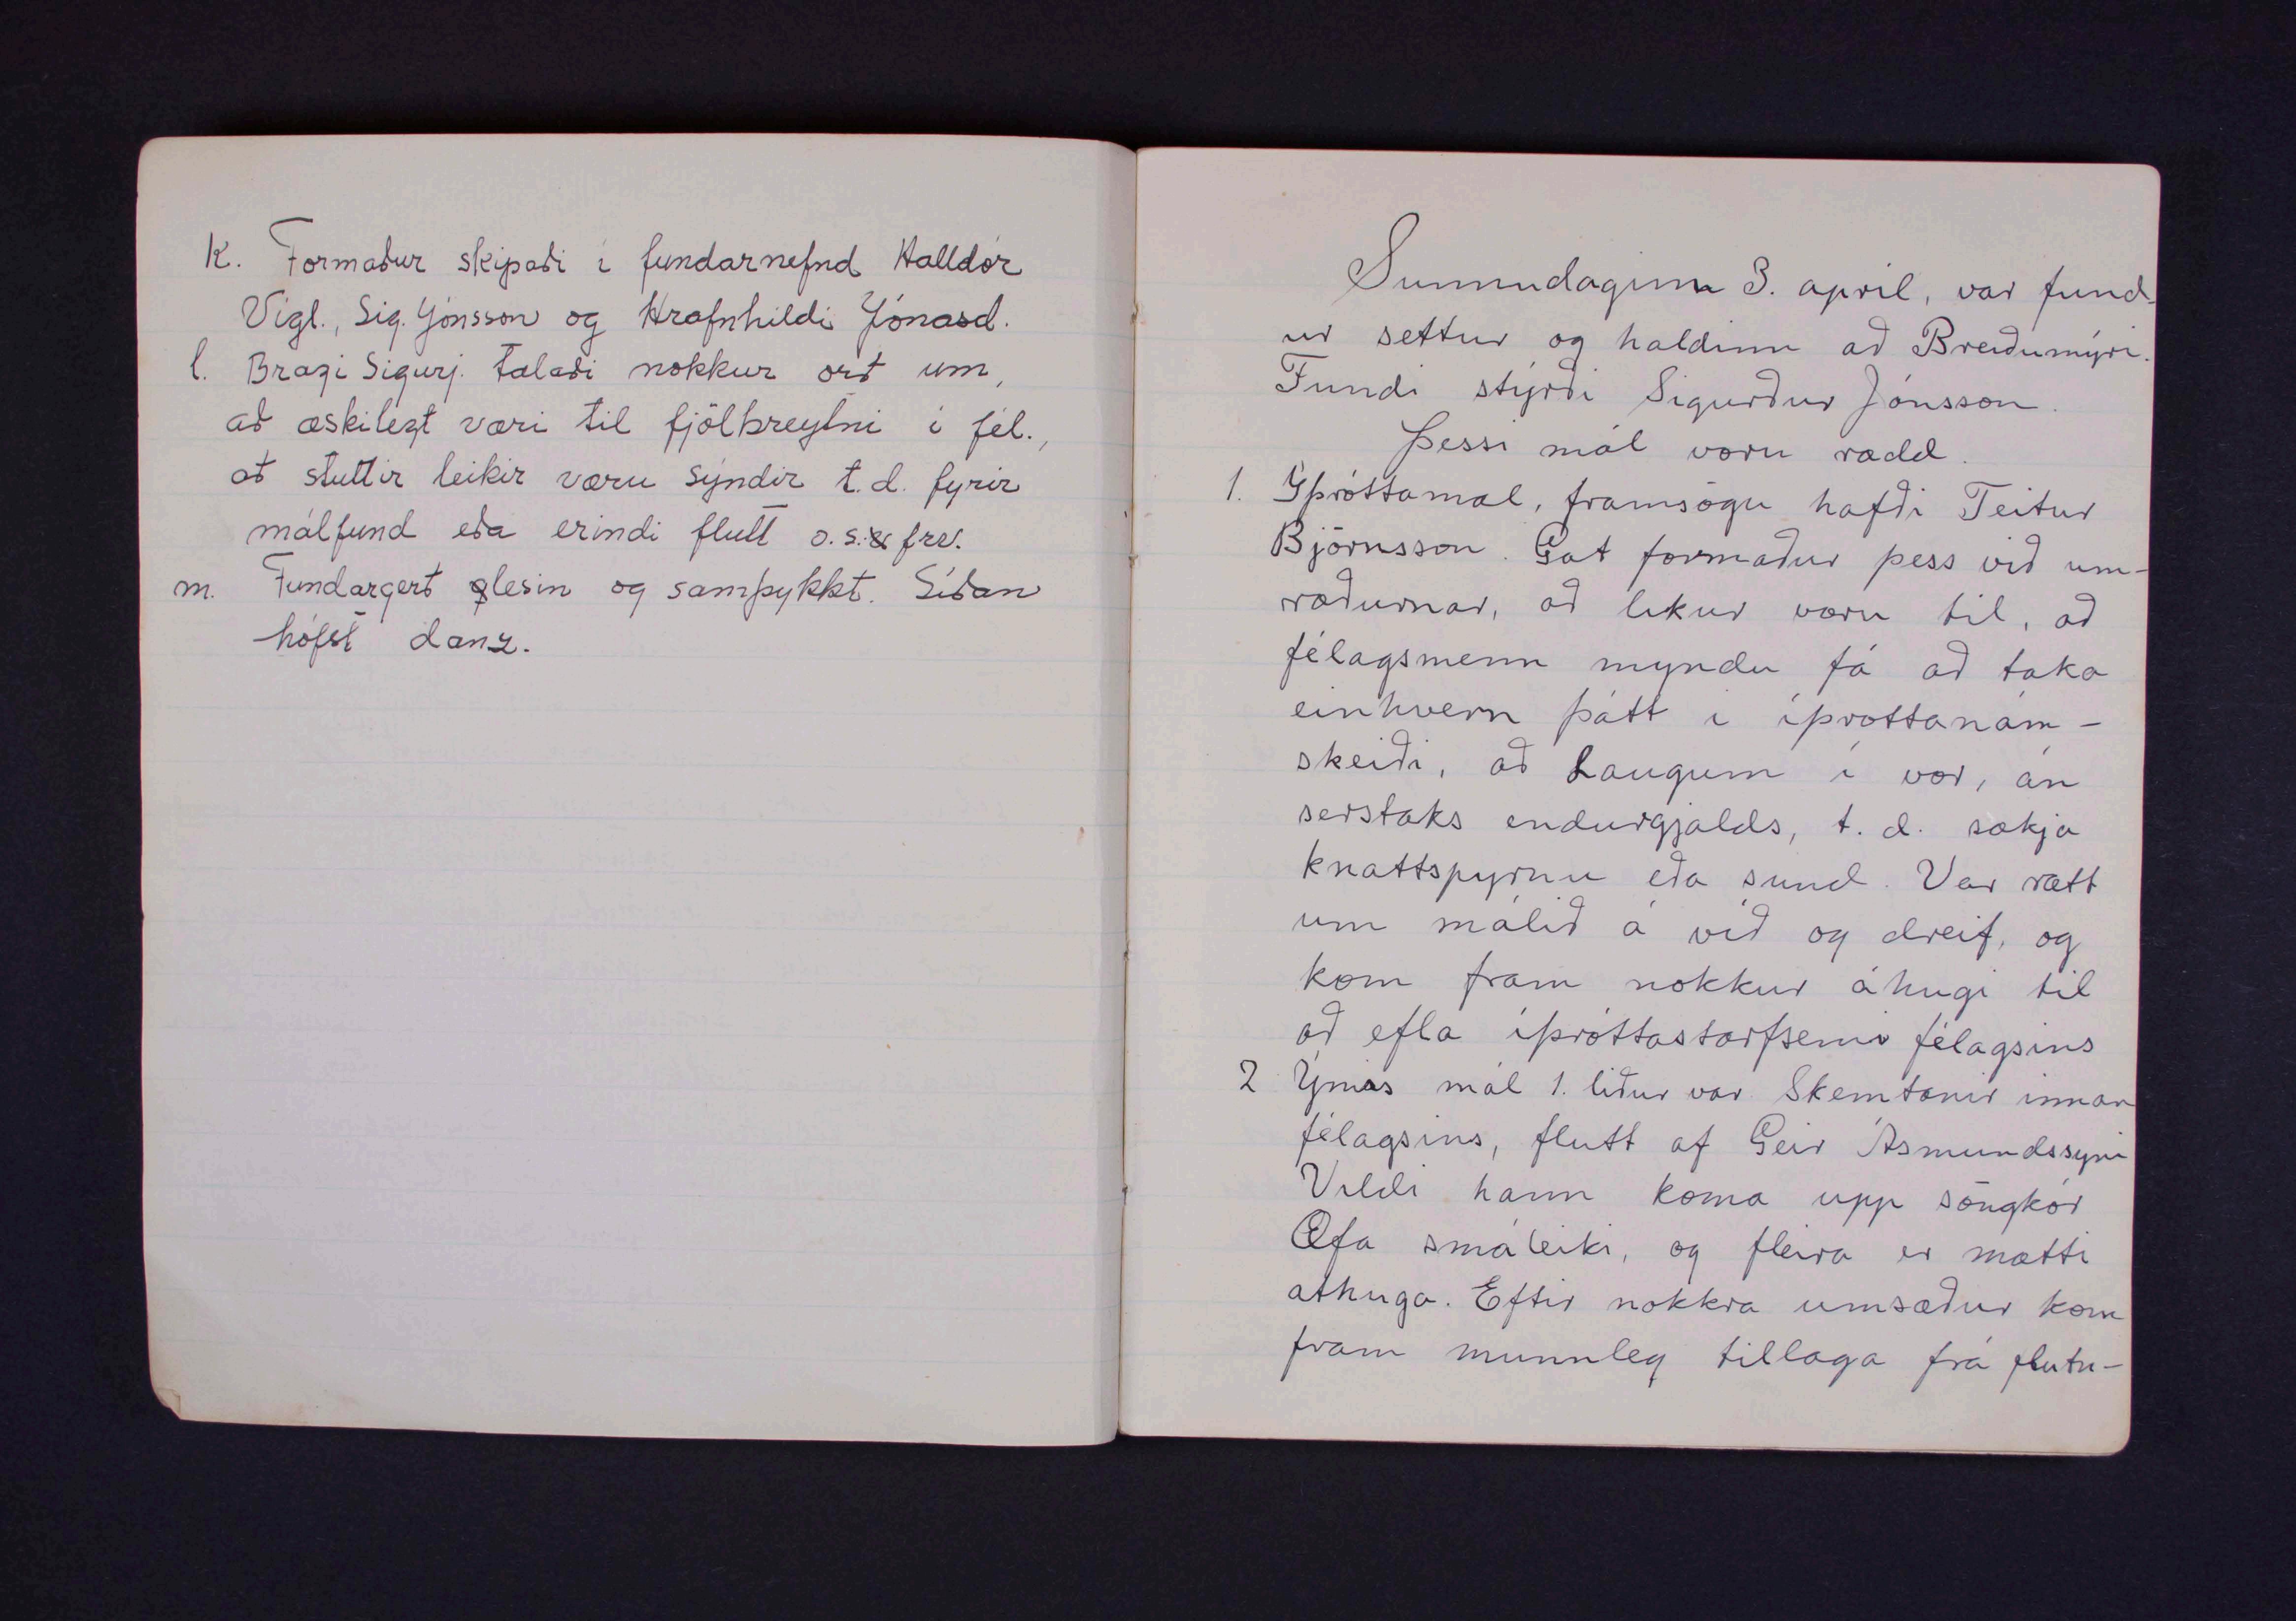 K. Formaður skipaði í fundarnefnd Halldór
Vigl., Sig. Jónsson og Hrafnhildi Jónasd.
l. Bragi Sigurj. talaði nokkur orð um,
að æskilegt væri til fjölbreytni í fél.,
að stuttir leikir væru sýndir t.d. fyrir
málfund eða erindi flutt o.s. frv.
m. Fundargerð lesin og samþykkt. Síðan
hófst danz.
Sunnudaginn 3. apríl, var fund-
ur settur og haldinn að Breiðumýri.
Fundi stýrði Sigurður Jónsson.
Þessi mál voru rædd.
1. Íþróttamál, framsögu hafði Teitur
Björnsson. Gat formaður þess við um-
ræðurnar, að líkur væru til, að
félagsmenn myndu fá að taka
einhvern þátt í íþróttanám-
skeiði, að Laugum í vor, án
serstaks endurgjalds, t.d. sækja
knattspyrnu eða sund. Var rætt
um málið á víð og dreif, og
kom fram nokkur áhugi til
að efla íþróttastarfsemi félagsins
2 Ýmis mál 1. liður var Skemtanir innan
félagsins, flutt af Geir Ásmundssyni
Vildi hann koma upp söngkór
Æfa smáleiki, og fleira er mætti
athuga. Eftir nokkra umræður kom
fram munnleg tillaga frá flutn-